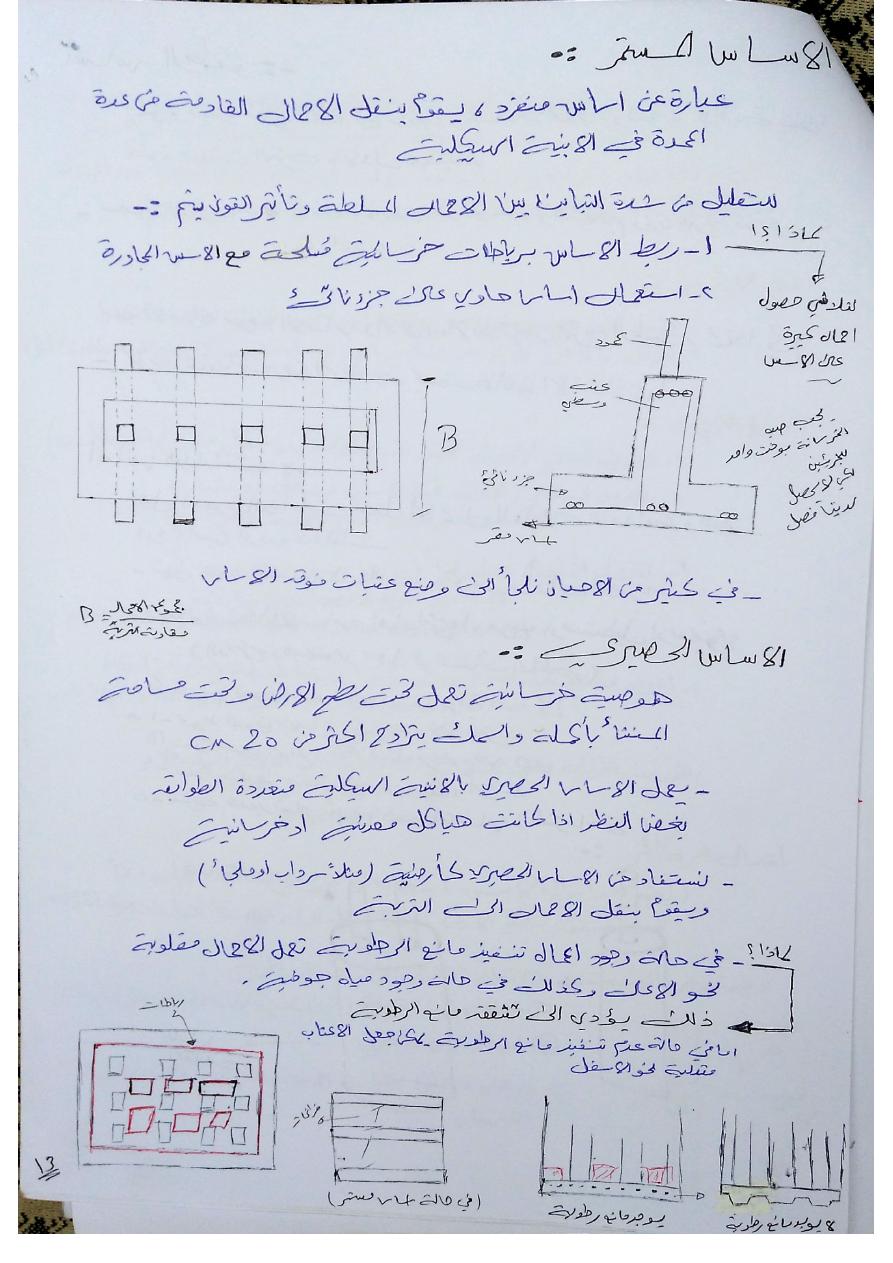 الاساس المستمر :-
عبارة عن اساس منفرد ، يقوم بنقل الاحمال القادمة من عدة
اعمدة في الابنية الهيكلية
للتقليل من شدة التباين بين الاحمال المسلطة وتأثير القوى يتم :-
لماذا ؟!
١- ربط الاساس برباطات خرسانية مسلحة مع الاسس المجاورة
٢- استعمال اساس حاوي على جزء ناتئ
لتلاشي حصول
احمال كبيرة
على الاسس
عمود
عتب
وسطي
جزء ناتئ
B
- يجب صب
الخرسانة بوقت واحد
للجزئين
لكي لا يحصل
لدينا فصل
- في كثير من الاحيان نلجأ الى وضع عتبات فوق الاساس
B = مجموع الاحمال
مقاومة التربة
الاساس الحصيري :-
هو صبة خرسانية تعمل تحت سطح الارض وتحت مساحة
المنشأ بأكمله والسمك يتراوح اكثر من 20 cm
- يعمل الاساس الحصيري بالابنية الهيكلية متعددة الطوابق
بغض النظر اذا كانت هياكل معدنية او خرسانية
- نستفاد من الاساس الحصيري كأرضية (مثلاً سرداب او ملجأ)
ويقوم بنقل الاحمال الى التربة
لماذا ؟
- في حالة وجود اعمال تنفيذ مانع الرطوبة تعمل الاحمال مقلوبة
نحو الاعلى وكذلك في حالة وجود مياه جوفية .
ذلك يؤدي الى تشقق مانع الرطوبة
اما في حالة عدم تنفيذ مانع الرطوبة يمكن جعل الاعتاب
متدلية نحو الاسفل
رباطات
(في حالة اساس مستمر)
يوجد مانع رطوبة
لا يوجد مانع رطوبة
١٣